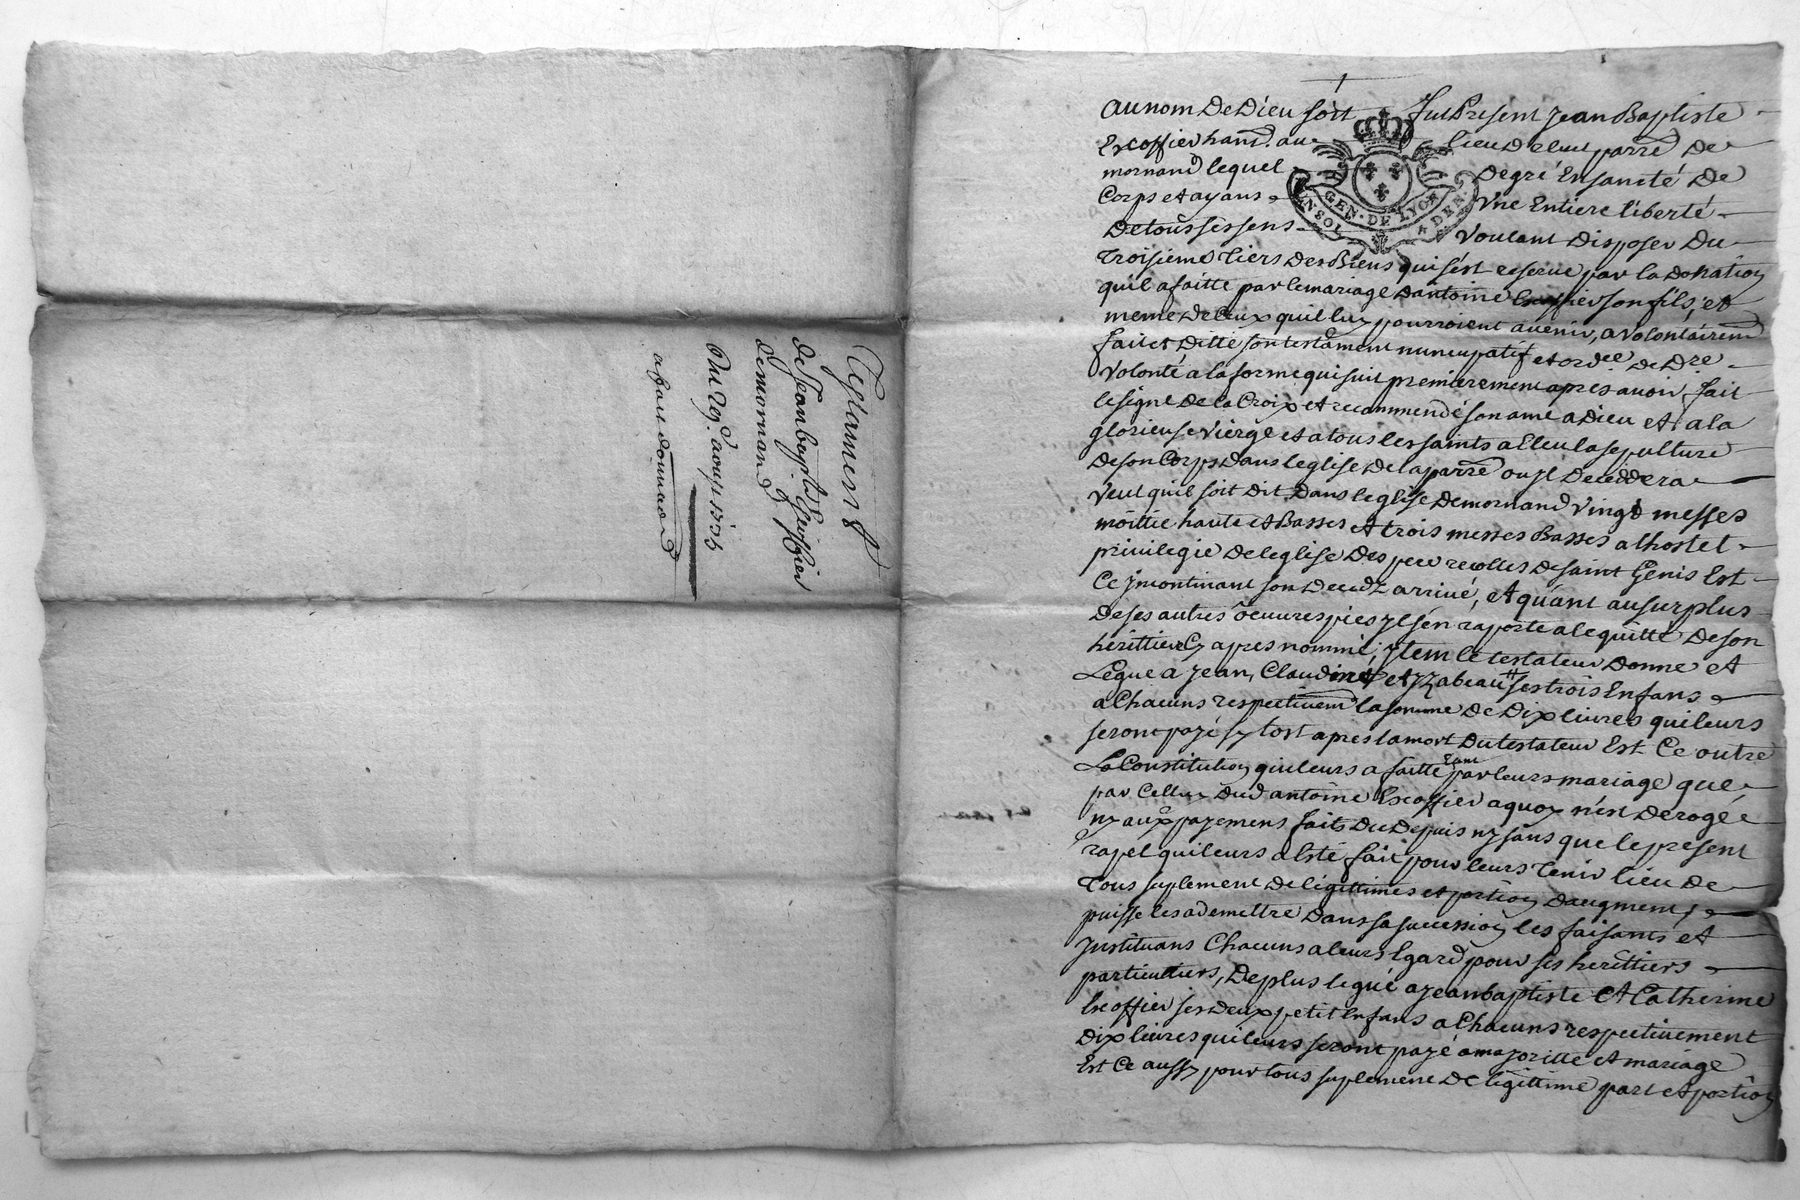 Testament
de Jean bapt.te Escoffier
de mornand
du 29e. aoust 1725
au nom De Dieu soit fut Present Jean Baptiste
Escoffier hant. au lieu De parre De
mornand lequel De gré En santé De
Corps et ayans Vne Entiere liberté
De tous ses sens Voulant Disposer Du
GEN. DE LYON
troisieme tiers Des Biens qui s'est reservé par la Donation
quil a faitte par le mariage D'antoine Escoffier son fils, et
meme De Ceux quil luy pourroient auenir, a volontairemt
fait et Ditté son testament nuncupatif et ordee. de Dre.
Volonté a la forme qui suit premierement apres auoir fait
le signe De la Croix et recommendé son ame a Dieu et a la
glorieuse Vierge et a tous les saints a Eleu la sepulture
De son Corps Dans leglise De la parre ou yl Deceddera
Veut quil soit Dit Dans leglise De mornand Vingt messes
moittie haute et Basses et trois messes Basses a lhostel
privilegie De leglise Des peres recolles De saint Genis Est
Ce ymontinant son Decedz arriué, et quant au surplus
De ses autres oeuures pies yl s'en raporte a lequitté De son
herittier Cy apres nommé, ytem le testateur Donne et
Legue a Jean, Claudine et yzabeau ses trois Enfans
a Chacuns respectiuemt la somme De Dix liures qui leurs
seront payé sy tost apres la mort Du testateur Est Ce outre
La Constitution qui leurs a faitte tant par leurs mariage que
par Celluy Dud antoine Escoffier a quoy n'est Derogé
ny aux payemens faits Du Depuis ny sans que le present
rapel qui leurs a Esté fait pour leurs tenir lieu De
tous suplement De legittimes et portion Daugment,
puisse les ademettre Dans sa succession les faisants et
Jnstituans Chacuns a leurs Egard pour ses herittiers
particulliers, De plus legué a Jean baptiste et Catherine
Escoffier ses Deux petit Enfans a Chacuns respectiuement
Dix liures qui leurs seront payé a majoritté et mariage
Est Ce aussy pour tous suplement De legittime part et portion